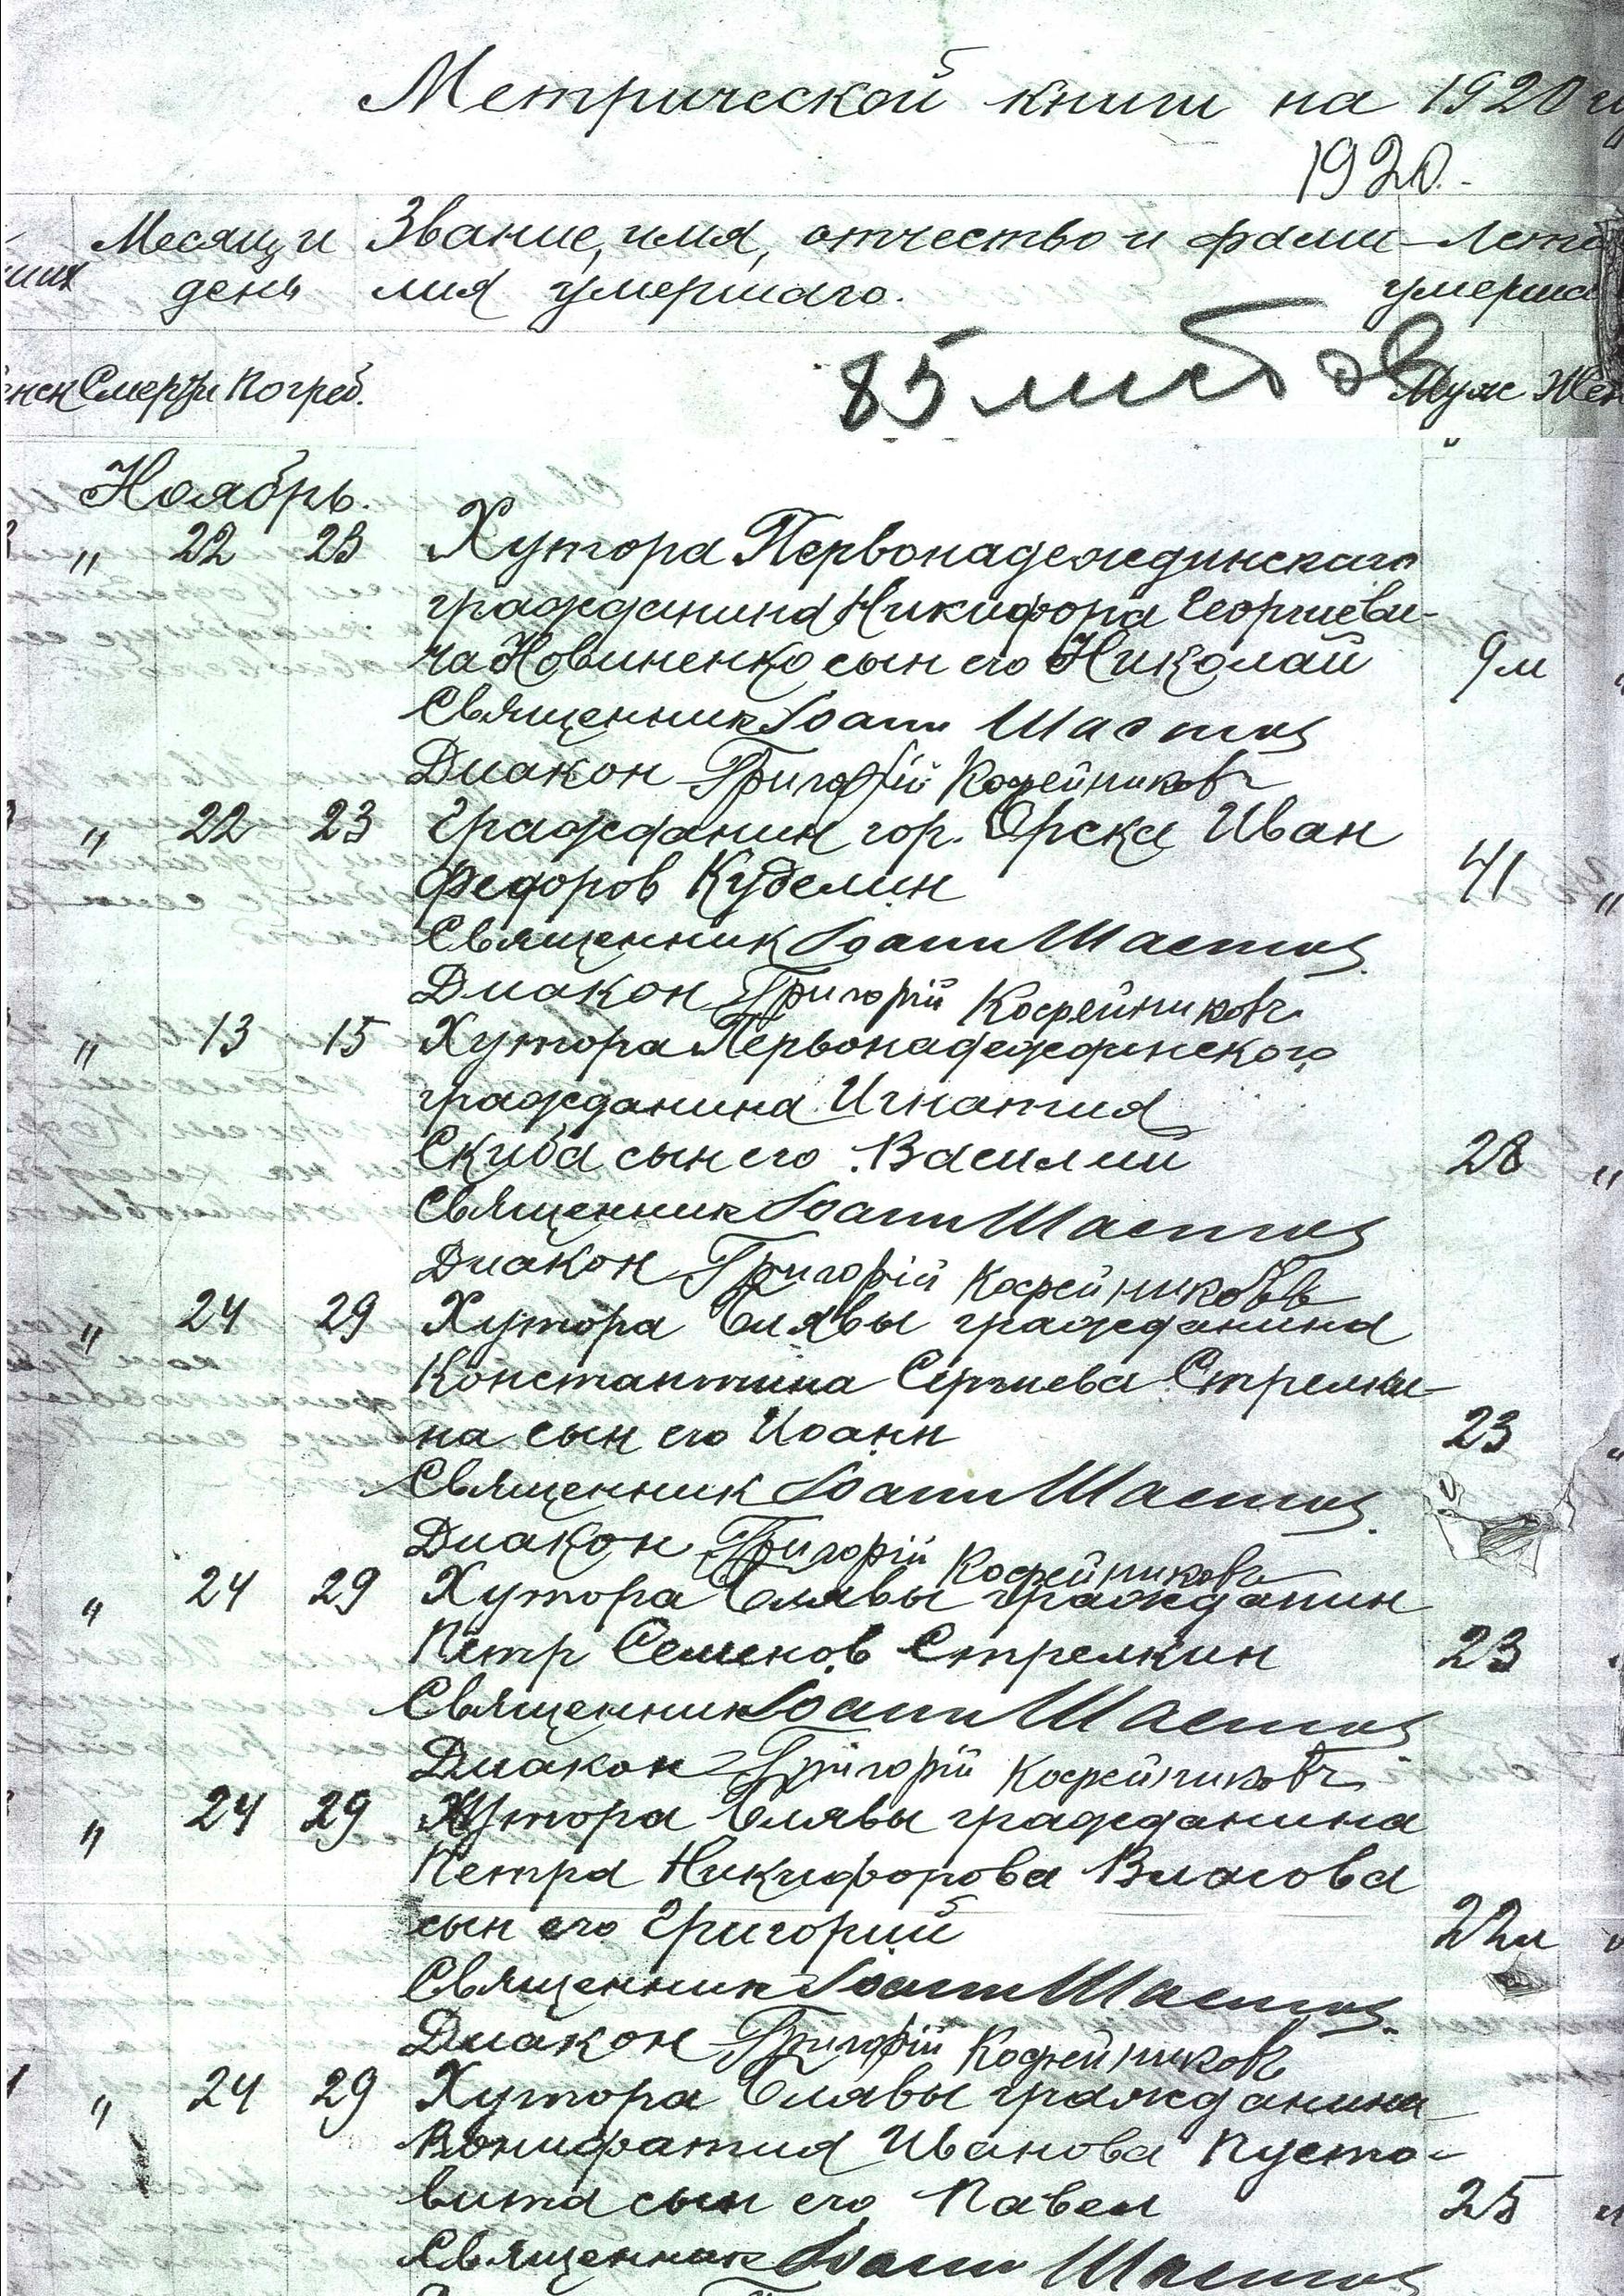 Метрической книги на 1920 г
1920.
Месяц и Звание, имя, отчество и фами- Лета
ших день лия умершаго. умерша
Смерти Погреб. 85 листов Муж Жен
Ноябрь.
" 22 23 Хутора Первонадеждинскаго
гражданина Никифора Георгиеви-
ча Новиненко сын его Николай 9м
Священник Iоанн
Диакон Григорiй Кофейниковъ
" 22 23 Гражданин гор. Орска Иван
Федоров Куделин 41 "
Священник Iоанн
Диакон Григорiй Кофейниковъ
" 13 15 Хутора Первонадеждинского
гражданина Игнатия
Скиба сын его Василий 28 "
Священник Iоанн
Диакон Григорiй Кофейниковъ
" 24 29 Хутора Блявы гражданина
Константина Сергиева Стрелки-
на сын его Иоанн 23 "
Священник Iоанн
Диакон Григорiй Кофейниковъ
" 24 29 Хутора Блявы гражданин
Петр Семенов Стрелкин 23
Священник Iоанн
Диакон Григорiй Кофейниковъ
" 24 29 Хутора Блявы гражданина
Петра Никифорова Власова
сын его Григорий 22
Священник Iоанн
Диакон Григорiй Кофейниковъ
" 24 29 Хутора Блявы гражданина
Вонифатия Иванова Пусто-
вита сын его Павел 25 "
Священник Iоанн